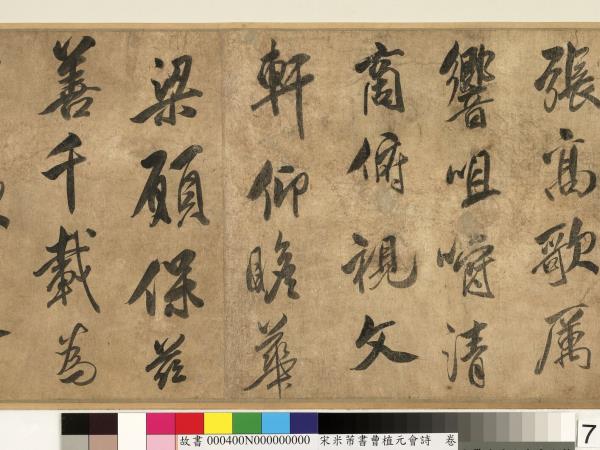 張高歌厲
響咀嚼清
商俯視文
軒仰瞻華
梁願保茲
善千載為
故書 000400N000000000 宋米芾書曹植元會詩 卷
7